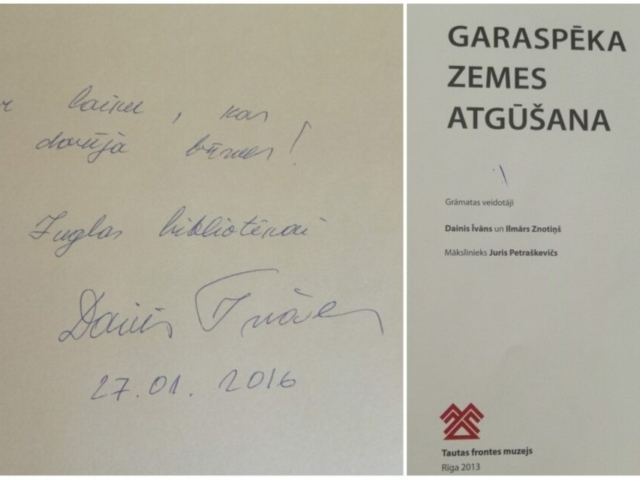 laiku, kas
darīja
Juglas bibliotēkai
Dainis Īvāns
27.01. 2016
GARASPĒKA
ZEMES
ATGŪŠANA
Grāmatas veidotāji
Dainis Īvāns un Ilmārs Znotiņš
Mākslinieks Juris Petraškevičs
Tautas frontes muzejs
Rīga 2013